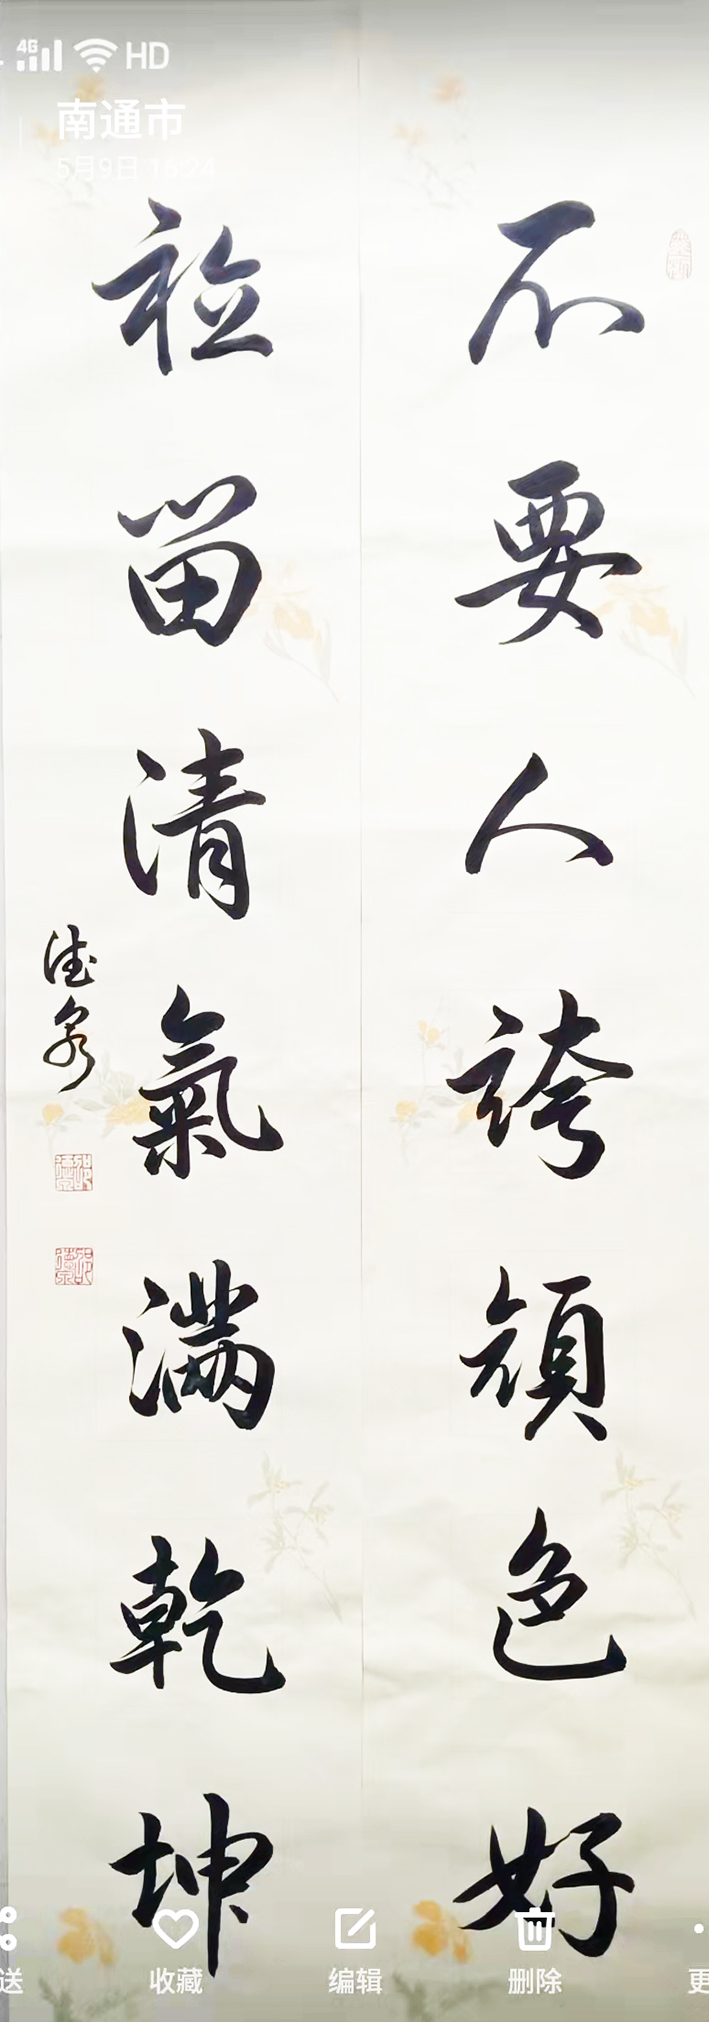 4G HD
南通市
5月9日 16:24
不要人誇顔色好
祗留清氣满乾坤
德泉
送
收藏
编辑
删除
更